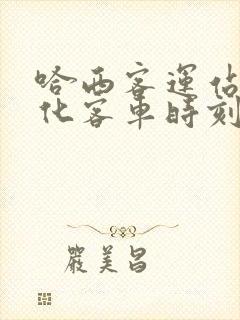 哈西客運站
化客車時刻
嚴美昌